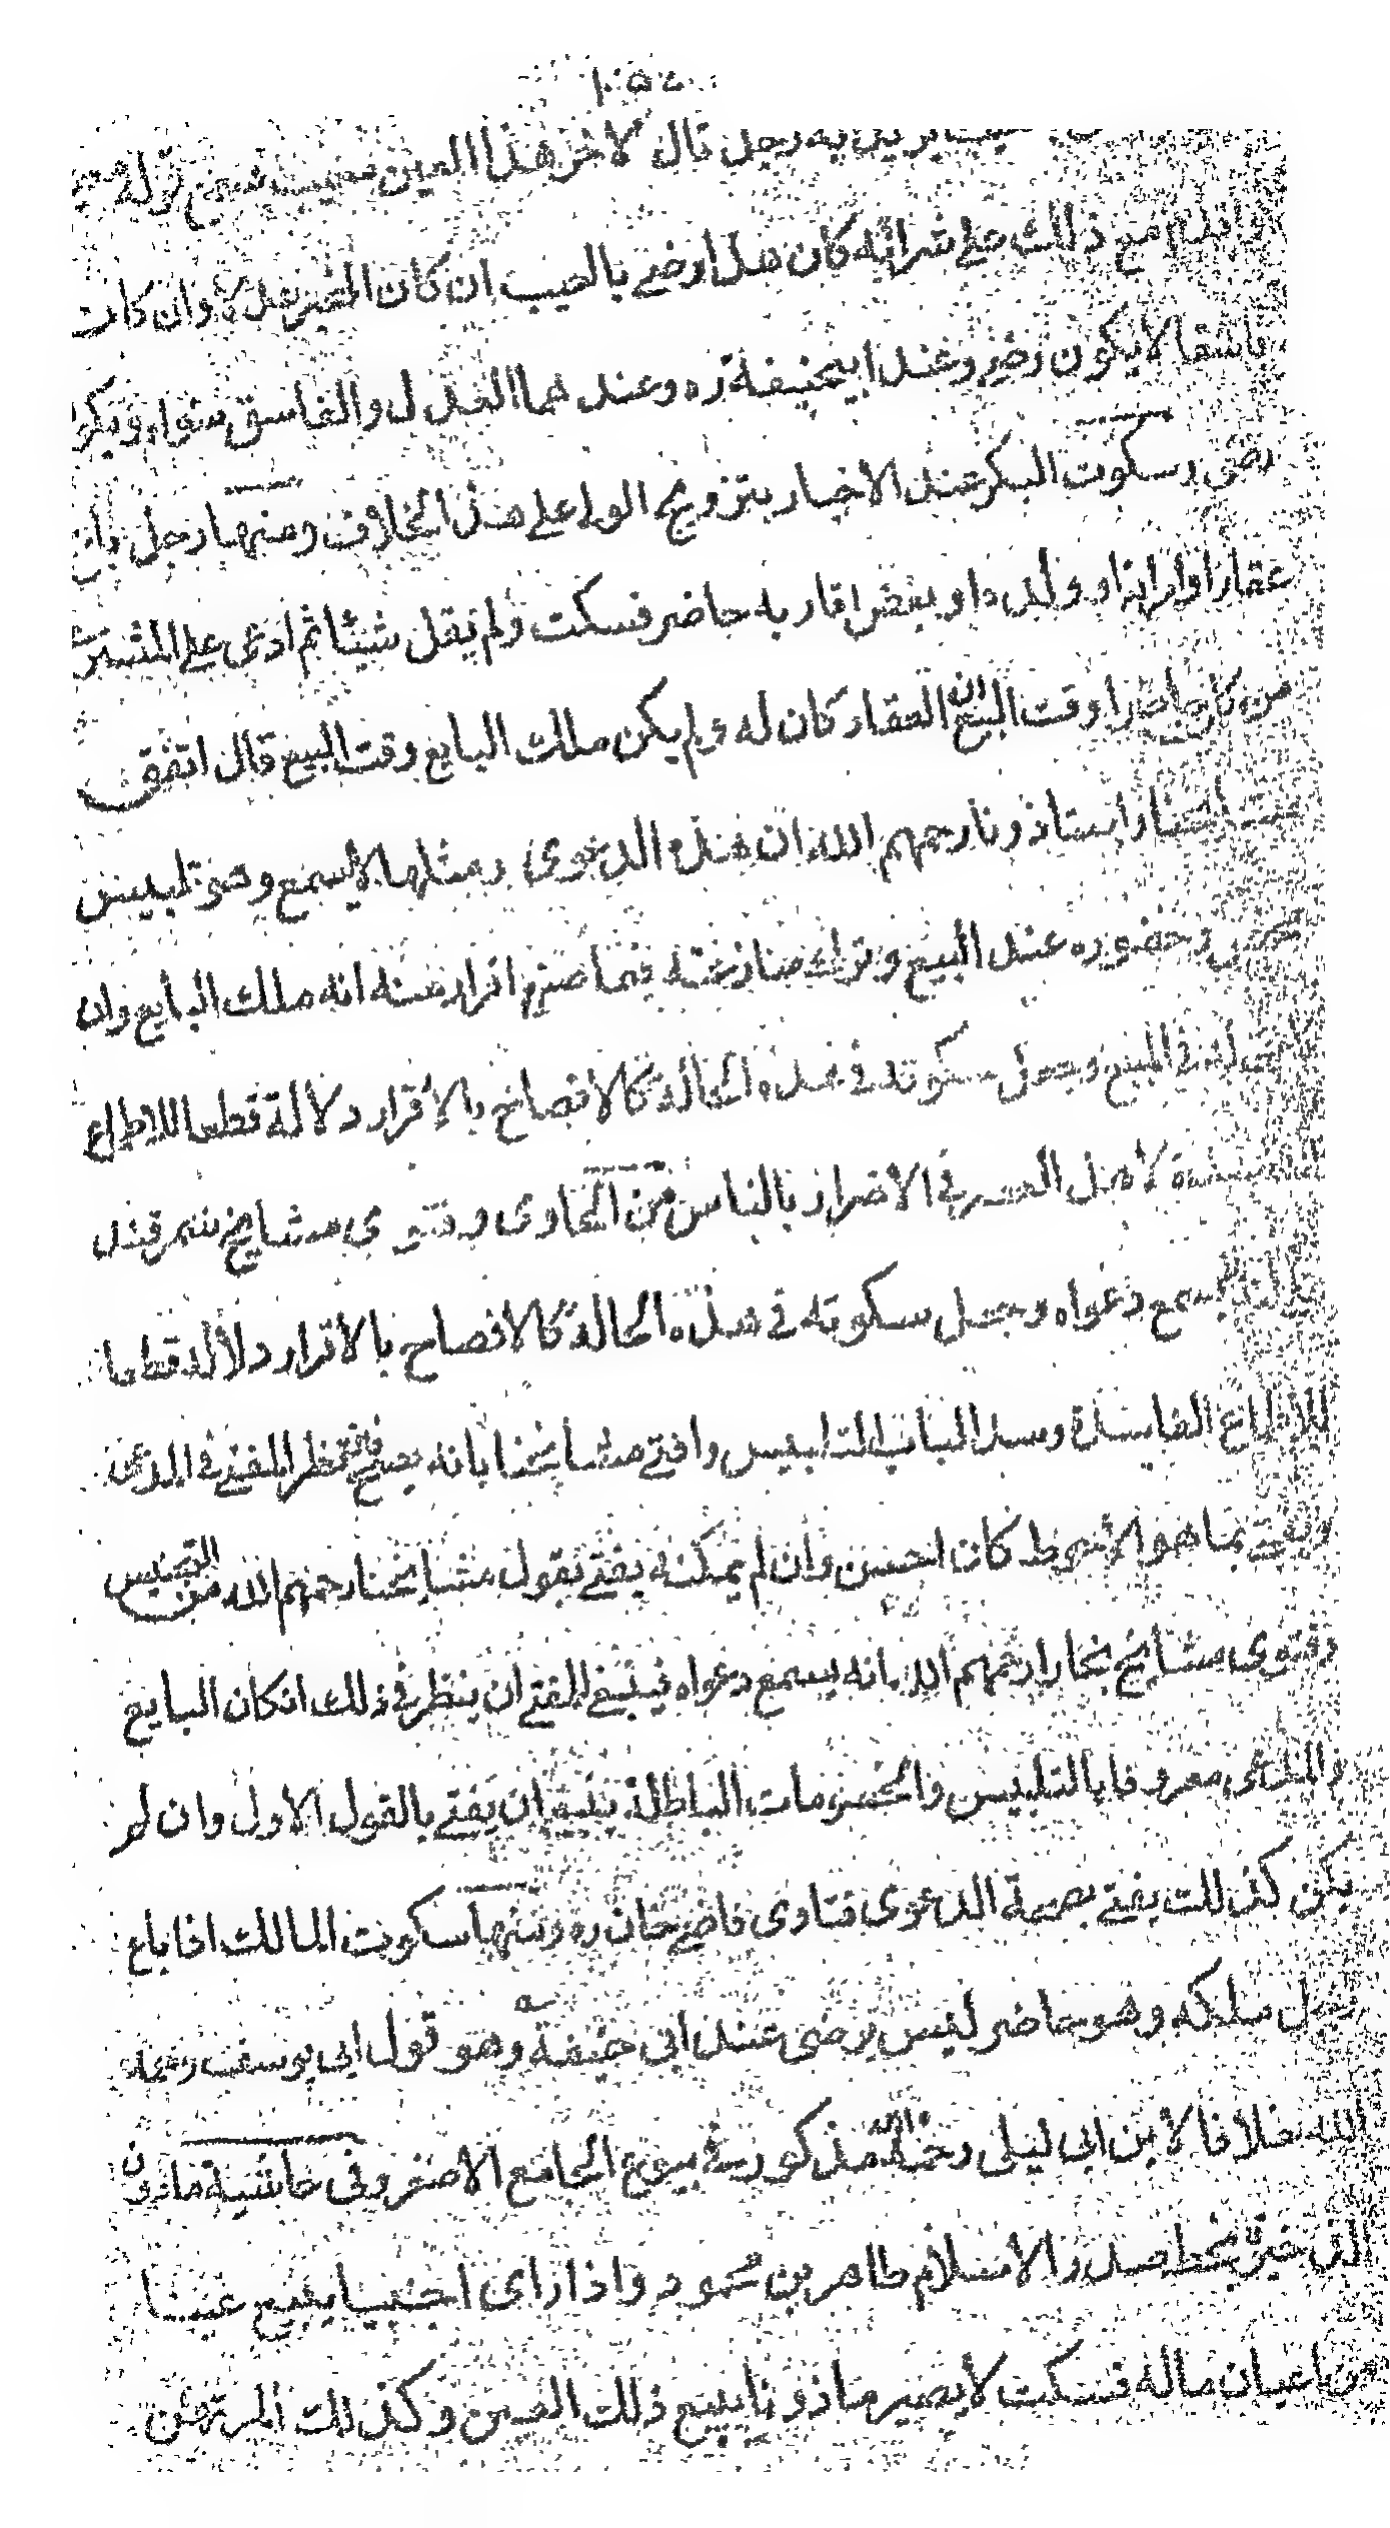 رجل قال لاخر هذا العين معيب فسمع قوله
واقدم مع ذلك على شرائه كان هذا رضى بالعيب ان كان المخبر عدلا وان كان
فاسقا لا يكون رضى وعند ابيحنيفة ره وعند هما العدل والفاسق سواء ويكون
رضى وسكوت البكر عند الاخبار بتزويج الولى على هذا الخلاف ومنها رجل باع
عقارا وامراته او ولده او بعض اقاربه حاضر فسكت ولم يقل شيئا ثم ادعى على المشترى
من كان حاضرا وقت البيع ان العقار كان له ولم يكن ملك البايع وقت البيع قال اتفق
استاذونا رحمهم الله ان هذه الدعوى ومثلها لا يسمع وهى تلبيس
وحضوره عند البيع وترك منازعته فيما صنع اقرار منه انه ملك البايع وان
له فى المبيع وجعل سكوته فى هذه الحالة كالافصاح بالاقرار دلالة قطعا للاطماع
الفاسدة لاهل العصر فى الاضرار بالناس من الحاوى وفتوى مشايخ سمرقند
انه لا يسمع دعواه وجعل سكوته فى هذه الحالة كالافصاح بالاقرار دلالة قطعا
للاطماع الفاسدة وسد الباب التلبيس وافتى مشايخنا بانه يصح فينظر المفتى فى المدعى
وافتى بما هو الاحوط كان احسن وان لم يمكنه يفتى بقول مشايخنا رحمهم الله من التجنيس
وفتوى مشايخ بخارا رحمهم الله انه يسمع دعواه فينبغى للمفتى ان ينظر فى ذلك ان كان البايع
والمدعى معروفا بالتلبيس والخصومات الباطلة ينبغى ان يفتى بالقول الاول وان لم
يكن كذلك يفتى بصحة الدعوى فتاوى قاضيخان ره ومنها سكوت المالك اذا باع
رجل ملكه وهو حاضر ليس برضى عند ابى حنيفة وهو قول ابى يوسف رحمه
الله خلافا لابن ابى ليلى رحمه الله مذكور فى بيوع الجامع الاصغر وفى حاشية ماذون
الذخيرة بخط صدر الاسلام طاهر بن محمود واذا راى اجنبيا يبيع عينا
من اعيان ماله فسكت لا يصير ماذونا ببيع ذلك العين وكذلك المرتهن